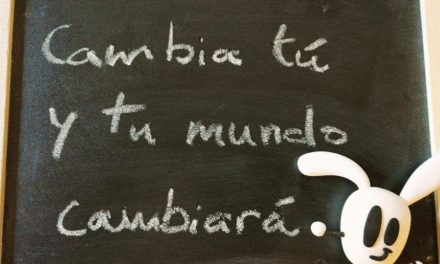 Cambia tú
y tu mundo
cambiará.